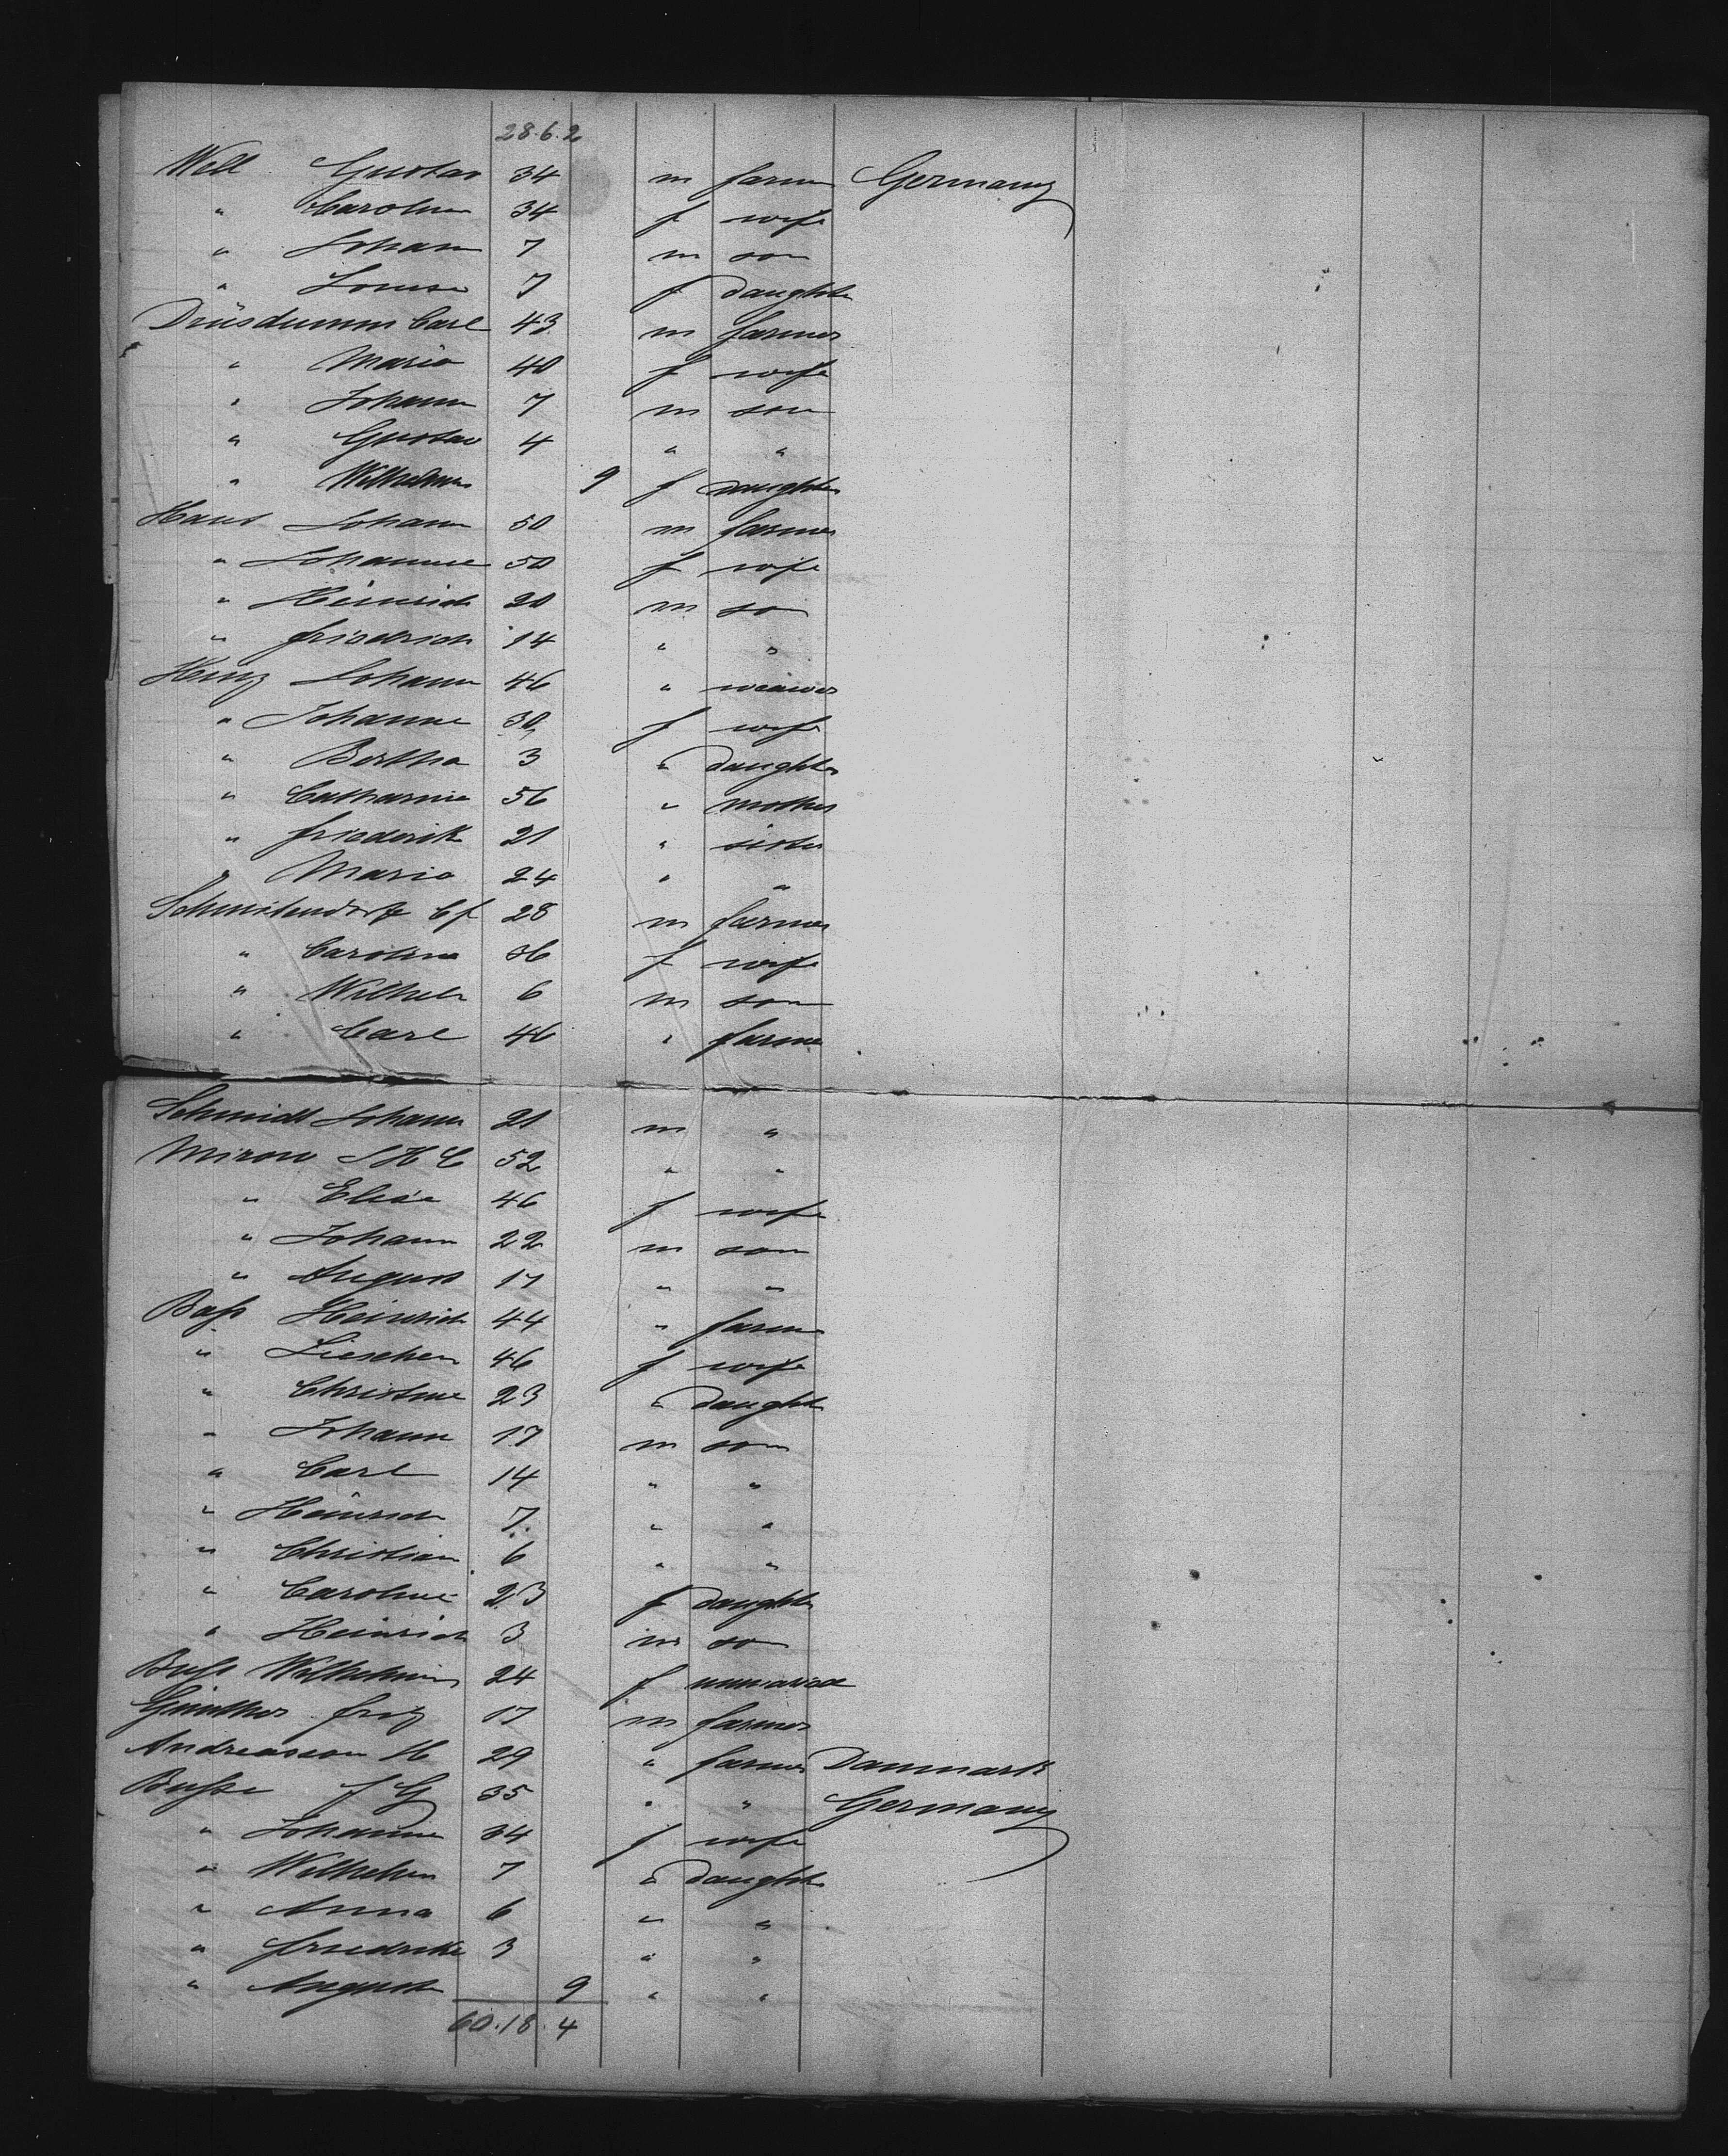 28.6.2
Well Gustav 34 m farmer Germany
" Caroline 34 f wife
" Johann 7 m son
" Louise 7 f daughter
Drüsdumm Carl 43 m farmer
" Maria 40 f wife
" Johann 7 m son
" Gustav 4 " "
" Wilhelmine 9 f daughter
Haus Johann 50 m farmer
" Johanne 50 f wife
" Heinrich 20 m so
" Friedrich 14 " "
Heinz Johann 46 " weawer
" Johanne 30 f wife
" Bertha 3 " daughter
" Catharine 56 " mother
" Friederik 21 " sister
" Maria 24 " "
28 m farmer
" Caroline 36 f wife
" Wilhelm 6 m son
" Carl 46 " farmer
Schmidt Johann 21 m "
Mirow J H C 52 " "
" Elise 46 f wife
" Johann 22 m son
" August 17 " "
Bass Heinrich 44 " farmer
" Lieschen 46 f wife
" Christine 23 " daught
" Johann 17 m son
" Carl 14 " "
" Heinrich 7 " "
" Christian 6 " "
" Caroline 23 f daughter
" Heinrich 3 m so
Buss Wilhelmine 24 f unmaried
Günther Fritz 17 m farmer
Andreasson H 29 " farmer Danmark
Busse F G 35 " " Germany
" Johanne 34 f wife
" Wilhelm 7 " daught
" Anna 6 " "
" Friedrike 3 " "
" August 9 " "
60.18.4